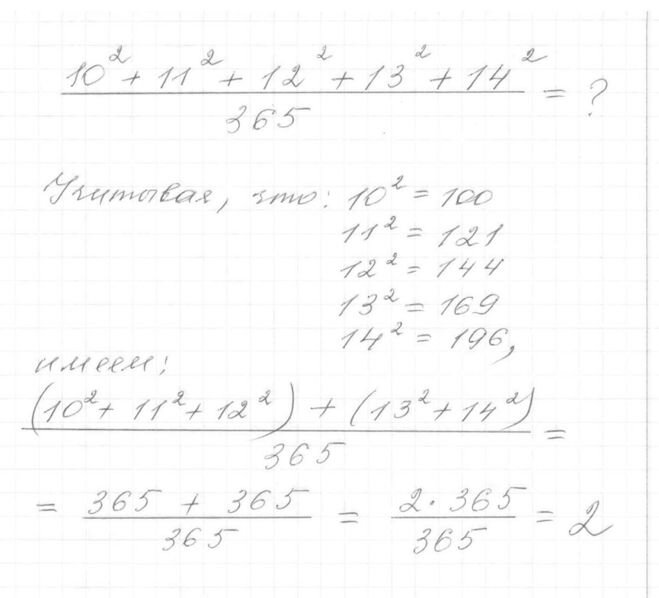 (10² + 11² + 12² + 13² + 14²) / 365 = ?
Учитывая, что: 10² = 100
11² = 121
12² = 144
13² = 169
14² = 196,
имеем:
((10² + 11² + 12²) + (13² + 14²)) / 365 =
= (365 + 365) / 365 = (2 · 365) / 365 = 2